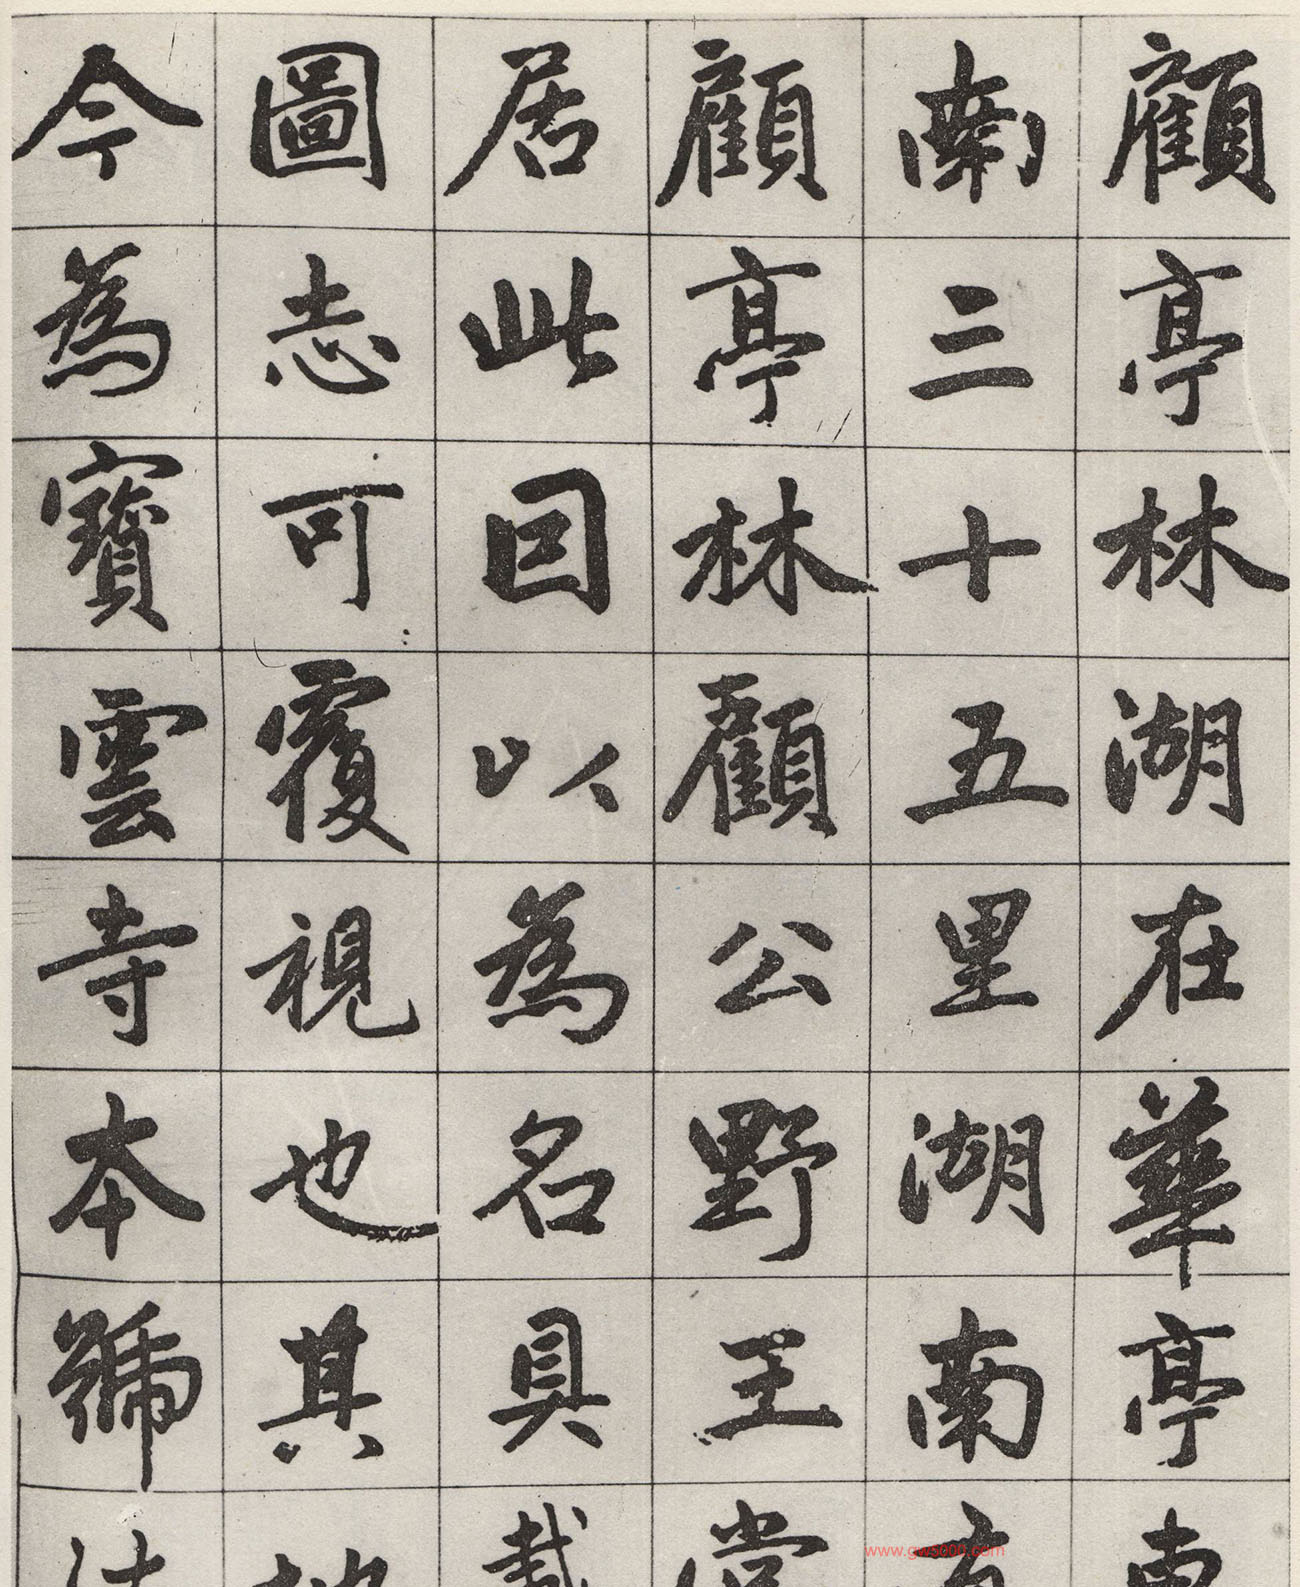 顧亭林湖在華亭東
南三十五里湖南有
顧亭林顧公野王嘗
居此因以為名具載
圖志可覆視也其地
今為寶雲寺本號法
www.gws000.com